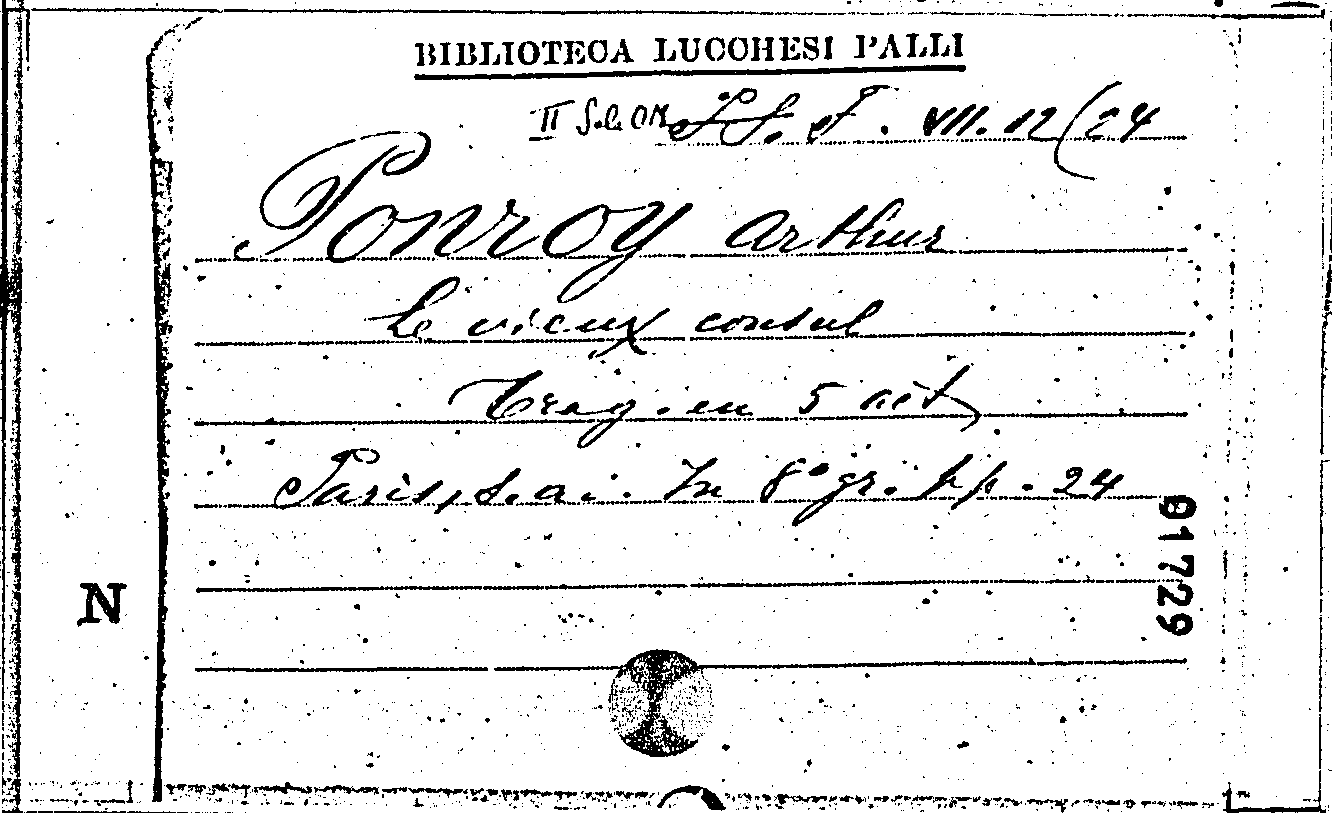 BIBLIOTECA LUCCHESI PALLI
II S.c. VII. 12 (24
Ponroy Arthur
Le vieux consul
Trag. en 5 act
Paris, s. a. i. In 8° gr. pp. 24
N
01729